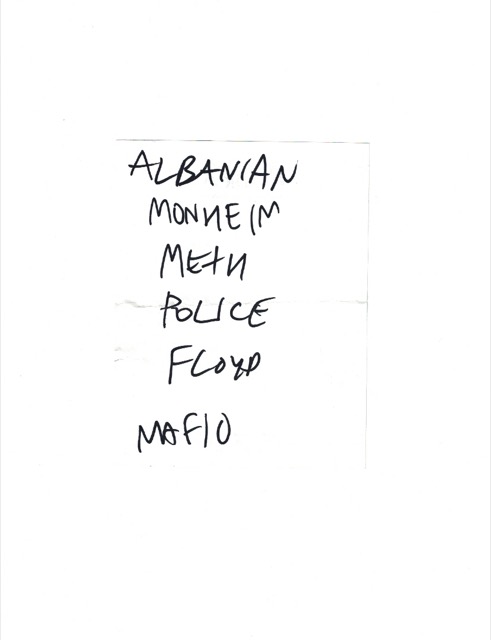 ALBANIAN
MONHEIM
METH
POLICE
FLOYD
MAFIO